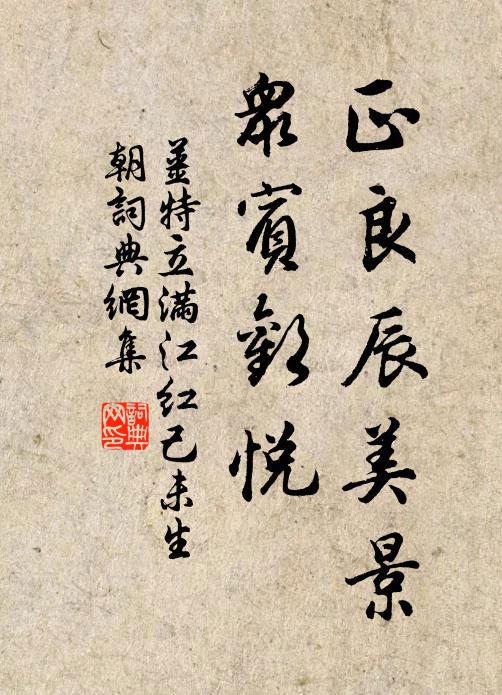 正良辰美景
衆賓歡悅
姜特立滿江紅己未生
朝詞典網集
詞典
网印